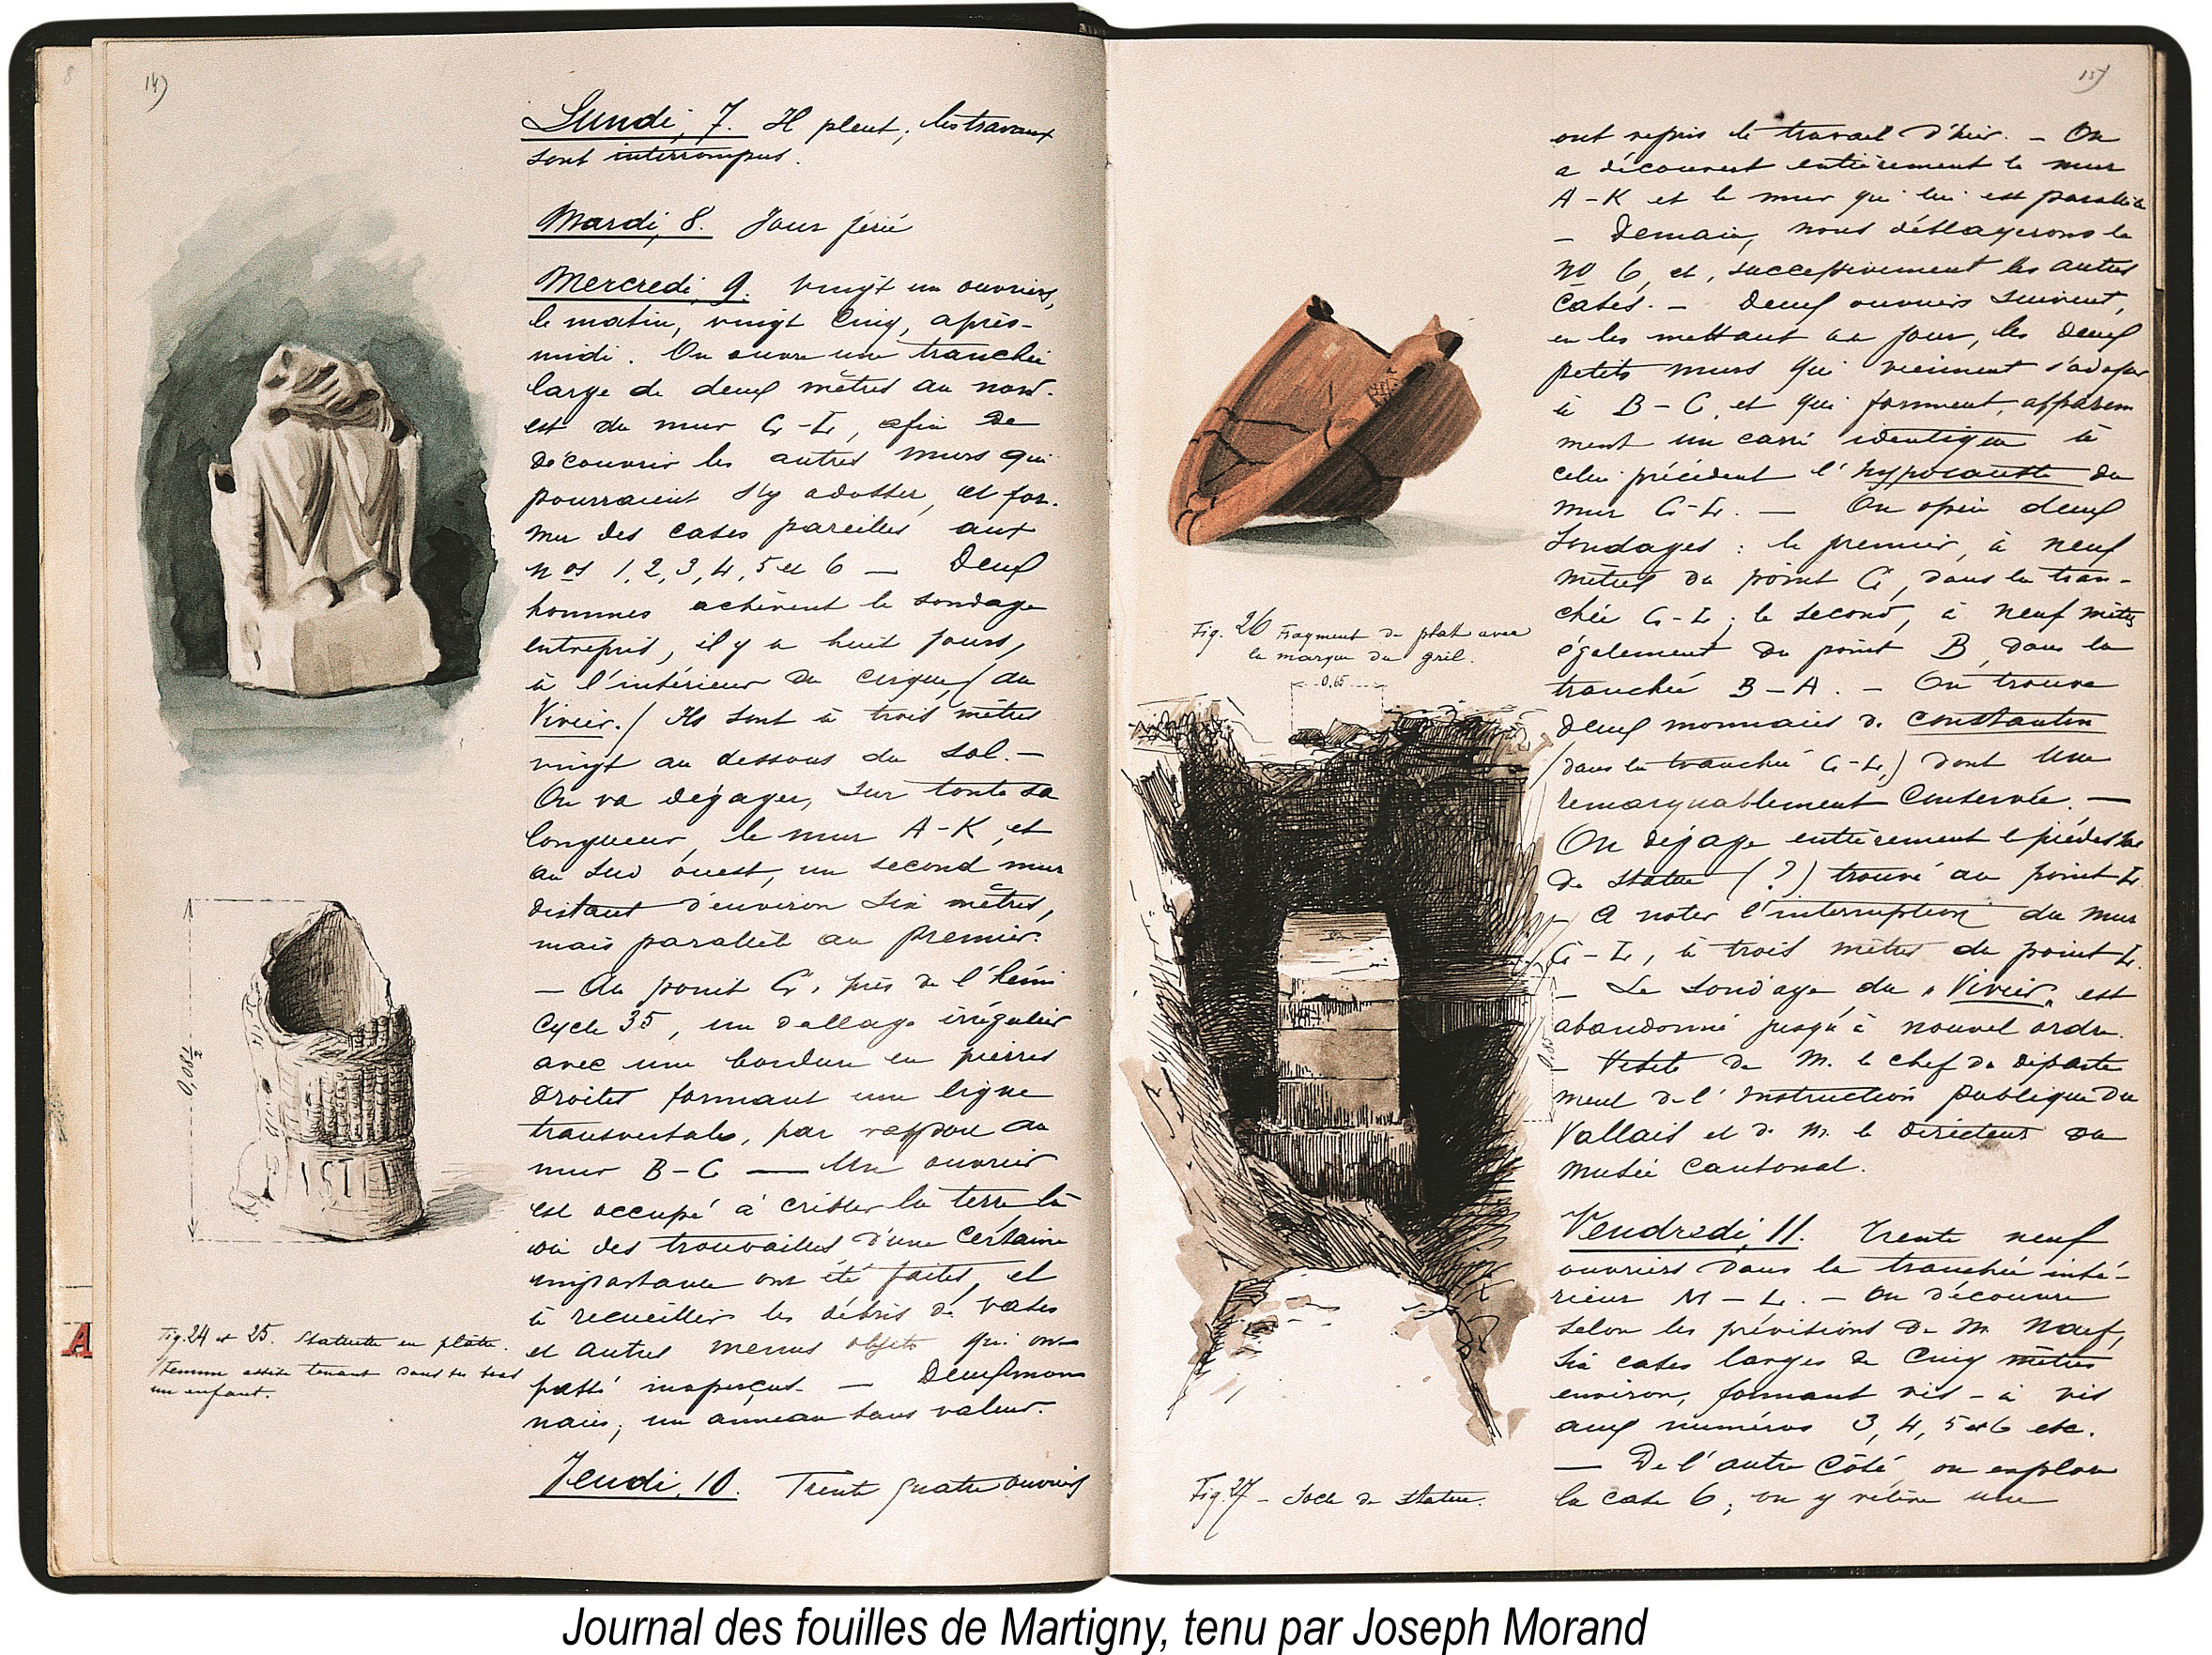 14)
Lundi, 7. Il pleut; les travaux
sont interrompus.
Mardi, 8. Jour férié
Mercredi, 9. Vingt un ouvriers,
le matin, vingt cinq, après-
midi. On ouvre une tranchée
large de deux mètres au nord-
est du mur G-L, afin de
découvrir les autres murs qui
pourraient s'y adosser, et for-
mer des cases pareilles aux
nos 1, 2, 3, 4, 5 et 6 — Deux
hommes achèvent le sondage
entrepris, il y a huit jours,
à l'intérieur du cirque, (du
Vivier.) Ils sont à trois mètres
vingt au dessous du sol. —
On va dégager, sur toute sa
longueur, le mur A-K, et
au sud ouest, un second mur
distant d'environ six mètres,
mais parallèle au premier.
— Au point G, près de l'hémi
cycle 35, un dallage irrégulier
avec une bordure en pierres
droites formant une ligne
transversale, par rapport au
mur B-C — Un ouvrier
est occupé à cribler la terre là
où des trouvailles d'une certaine
importance ont été faites, et
à recueillir les débris de vases
et autres menus objets qui ont
passé inaperçus. — Deux mon
naies, un anneau sans valeur.
Jeudi, 10. Trente quatre ouvriers
0,08½
ISTI
Fig. 24 et 25. Statuette en plâtre.
Femme assise tenant dans ses bras
un enfant.
A
8
15)
ont repris le travail d'hier. — On
a découvert entièrement le mur
A-K et le mur qui lui est parallèle
— Demain, nous déblayerons le
No 6, et, successivement les autres
cases. — Deux ouvriers suivent,
en les mettant au jour, les deux
petits murs qui viennent s'adosser
à B-C, et qui forment, apparem
ment un carré identique à
celui précédent l'hypocauste du
mur G-L. — On opère deux
sondages: le premier, à neuf
mètres du point G, dans la tran-
chée G-L; le second, à neuf mètres
également du point B, dans la
tranchée B-A. — On trouve
deux monnaies de Constantin
(dans la tranchée G-L,) dont une
remarquablement conservée. —
On dégage entièrement le piédestal
de statue (?) trouvé au point L.
— A noter l'interruption du mur
G-L, à trois mètres du point L.
— Le sondage du "Vivier" est
abandonné jusqu'à nouvel ordre.
— Visite de M. le Chef du départe
ment de l'Instruction publique du
Vallais et de M. le directeur du
musée cantonal.
Vendredi, 11. Trente neuf
ouvriers dans la tranchée inté-
rieure M-L. — On découvre
selon les prévisions de M. Naef,
six cases larges de cinq mètres
environ, formant vis-à vis
aux numéros 3, 4, 5 et 6 etc.
— De l'autre côté, on explore
la case 6; on y relève une
Fig. 26 Fragment de plat avec
la marque du gril.
0,65
0,85
Fig. 27 — Socle de statue.
Journal des fouilles de Martigny, tenu par Joseph Morand